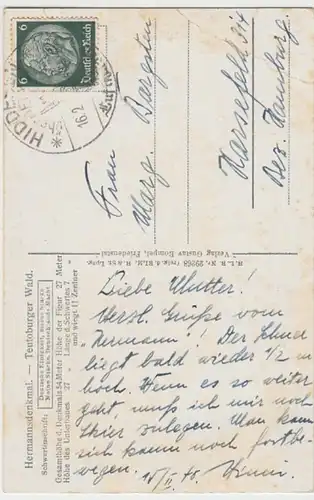 Hermannsdenkmal. — Teutoburger Wald.
Schwertinschrift:
Deutsche Einigkeit, meine Stärke
Meine Stärke, Deutschlands Macht
Gesamthöhe d. Denkmals 54 Meter
Höhe der Figur 27 Meter
Höhe des Unterbaues 27 "
Länge d. Schwertes 7 "
und wiegt 11 Zentner
Verlag Gustav Rompel, Friedenstal
6 Deutsches Reich 6
HIDDE
16.2.
Liebe Mutter!
Herzl. Grüße vom
"Hermann"! Der Schnee
liegt bald wieder 1/2 m
hoch. Wenn es so weiter
geht, muß ich mir noch
Skier zulegen. Man kann
sich kaum noch fortbe-
wegen.
15/II 40.
Frau
Marg. Bargsten
Harsefeld 314
Bez. Hamburg.